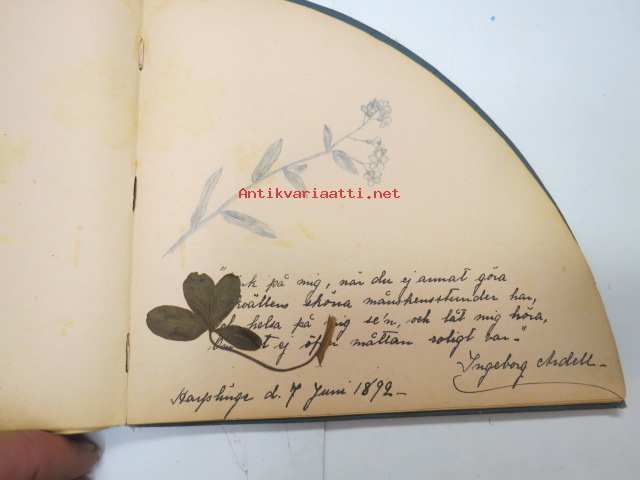 Antikvariaatti.net
på mig, när du ej annat göra
sköna månskensstunder har,
helsa på se'n, och låt mig höra,
ej måttan roligt var."
Ingeborg Ardell
Harplinge d. 7 Juni 1892